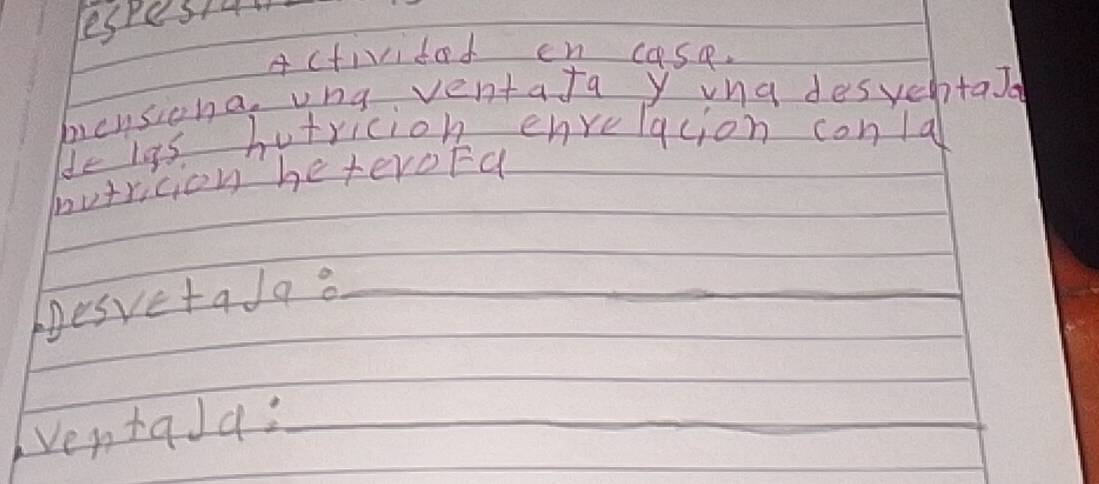 Actividad en casa.
mensiona. una ventaJa y una desventaJa
de las. nutricion enrelacion con la
nutricion heteroFa
Desvetaja:
ventaja: